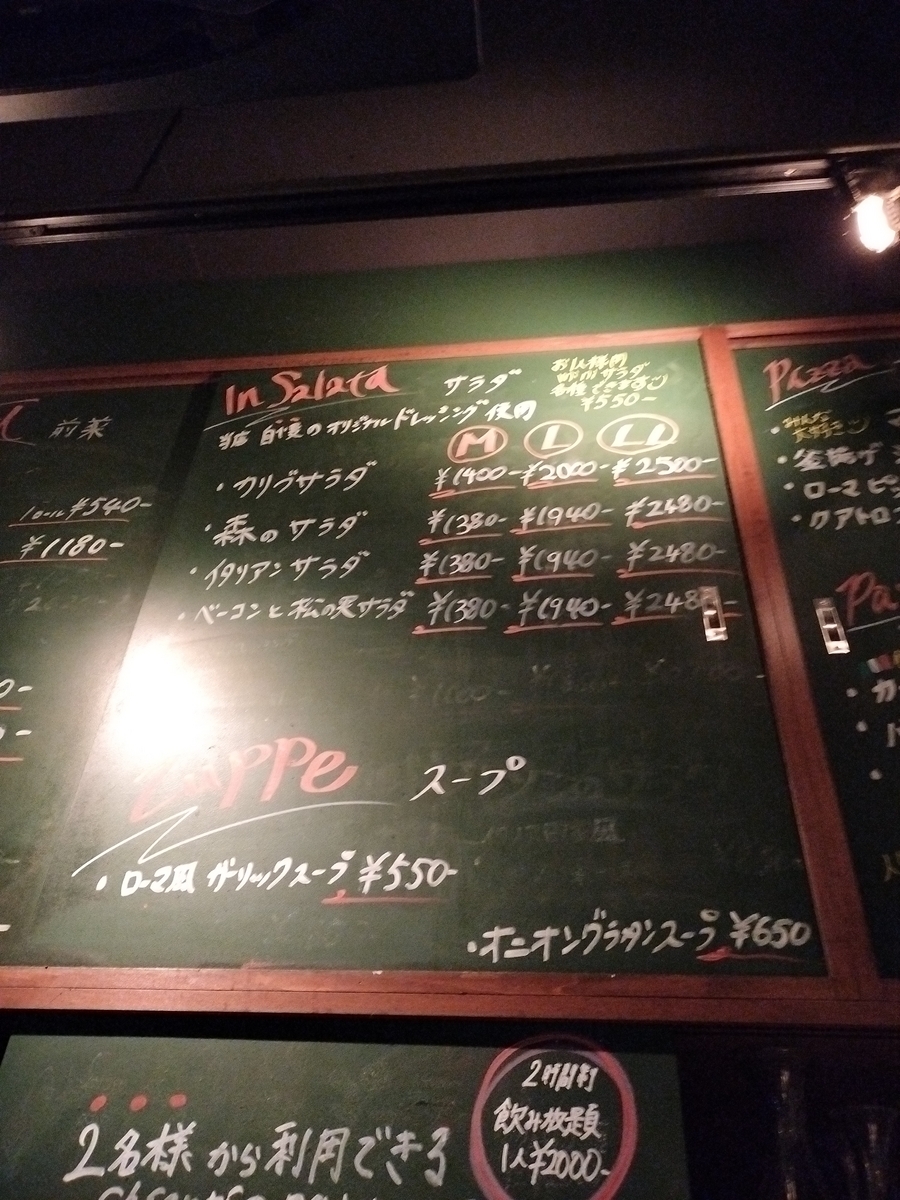 前菜
¥540-
¥1180-
In Salata サラダ
お1人様用
サラダ
各種できます
¥550-
当店自慢のオリジナルドレッシング使用
M L LL
・カリブサラダ ¥1400- ¥2000- ¥2500-
・森のサラダ ¥1380- ¥1940- ¥2480-
・イタリアンサラダ ¥1380- ¥1940- ¥2480-
・ベーコンと松の実サラダ ¥1380- ¥1940- ¥248
Zuppe スープ
・ローマ風ガーリックスープ ¥550-
・オニオングラタンスープ ¥650
Pizza
・釜揚げ
・ローマピ
・クアトロ
Pa
・カ
2名様から利用できる
2時間制
飲み放題
1人¥2000-